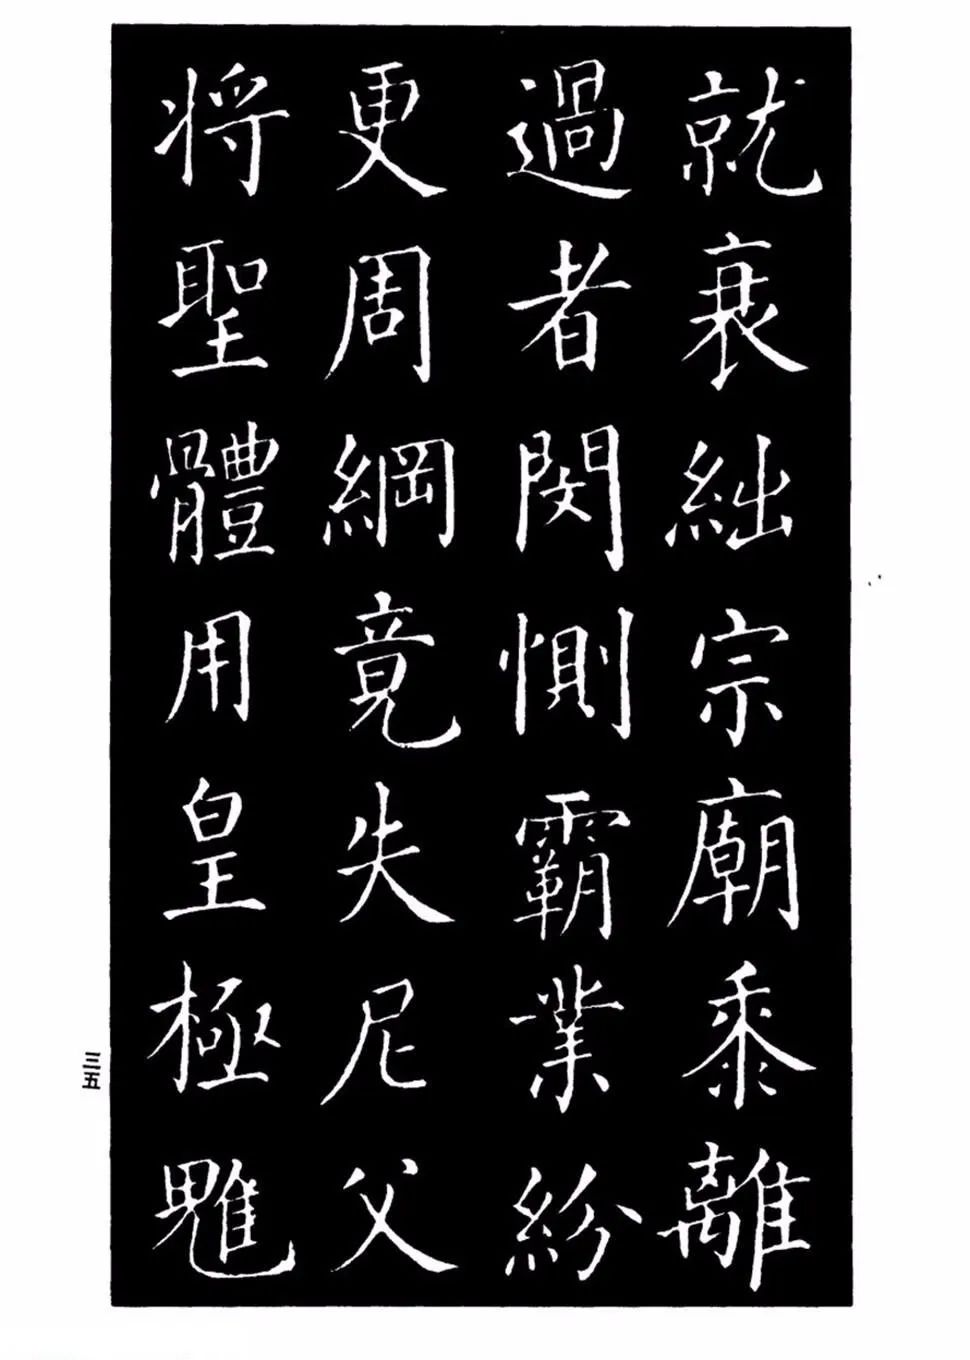 就衰絀宗廟黍離
過者閔惻霸業紛
更周綱竟失尼父
将聖體用皇極魋
三五